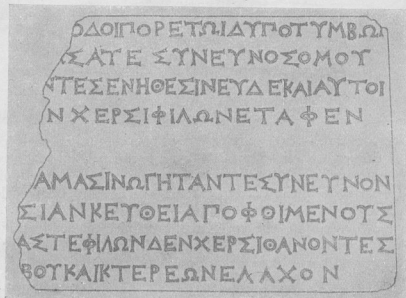 ΟΔΟΙΠΟΡΕΤΩΙΔΥΠΟΤΥΜΒΩΙ
ΣΑΤΕΣΥΝΕΥΝΟΣΟΜΟΥ
ΝΤΕΣΕΝΗΘΕΣΙΝΕΥΔΕΚΑΙΑΥΤΟΙ
ΝΧΕΡΣΙΦΙΛΩΝΕΤΑΦΕΝ
ΑΜΑΣΙΝΩΓΗΤΑΝΤΕΣΥΝΕΥΝΟΝ
ΣΙΑΝΚΕΥΘΕΙΑΠΟΦΘΙΜΕΝΟΥΣ
ΑΣΤΕΦΙΛΩΝΔΕΝΧΕΡΣΙΘΑΝΟΝΤΕΣ
ΒΟΥΚΑΙΚΤΕΡΕΩΝΕΛΑΧΟΝ